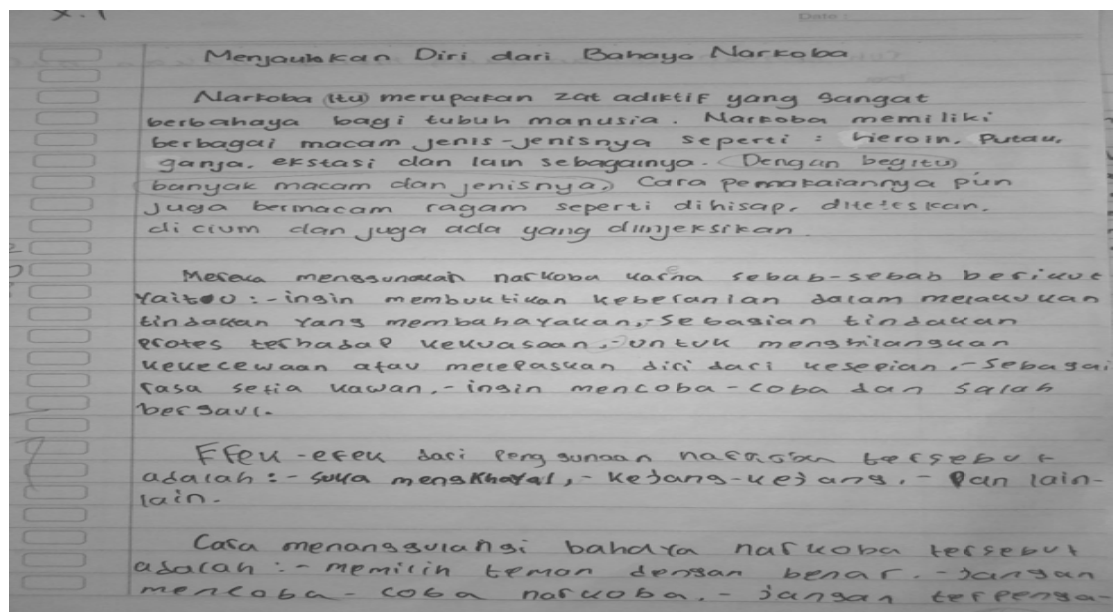 X.1
Date :
Menjauhkan Diri dari Bahaya Narkoba
Narkoba (itu) merupakan zat adiktif yang sangat
berbahaya bagi tubuh manusia. Narkoba memiliki
berbagai macam jenis-jenisnya seperti : hieroin, Putau,
ganja, ekstasi dan lain sebagainya. (Dengan begitu)
banyak macam dan jenisnya,) Cara pemakaiannya pun
Juga bermacam ragam seperti dihisap, diteteskan,
di cium dan juga ada yang diinjeksikan
Mereka menggunakan narkoba karna sebab-sebab berikut
Yaitu :- ingin membuktikan keberanian dalam melakukan
tindakan Yang membahayakan,- Sebagian tindakan
Protes terhadap kekuasaan,- Untuk menghilangkan
kekecewaan atau melepaskan diri dari kesepian,- Sebagai
rasa setia kawan,- ingin mencoba-coba dan salah
bergaul.
Efek-efek dari Penggunaan tersebut
adalah : - suka mengkhayal, - kejang-kejang, - Dan lain-
lain.
Cara menanggulangi bahaya narkoba tersebut
adalah : - memilih teman dengan benar. - Jangan
mencoba-coba narkoba. - Jangan terpenga-